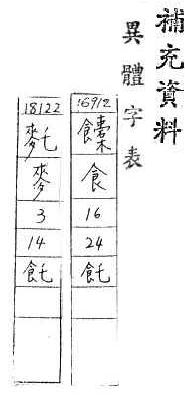 補充資料
異體字表
16912
食
16
24
飥
18122
麥
3
14
飥